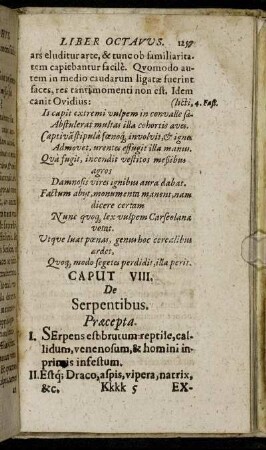 LIBER OCTAVUS. 1257
ars eluditur arte, & tunc ob familiarita-
tem capiebantur facilè. Quomodo au-
tem in medio caudarum ligatæ fuerint
faces, res tanti momenti non est. Idem
canit Ovidius: (licti, 4. Fast.
Is capit extremi vulpem in convalle sa-
Abstulerat multas illa cohortis aves.
Captivã stipulâ fœnoq; involvit, & ignes
Admovet, urentes effugit illa manus.
Quà fugit, incendit vestitos messibus
agros
Damnosis vires ignibus aura dabat.
Factum abijt, monumenta manent, nam
dicere certam
Nunc quoq; lex vulpem Carseolana
vetat.
Utque luat pœnas, genus hoc cerealibus
ardet.
Quoq; modo segetes perdidit, illa perit.
CAPUT VIII.
De
Serpentibus.
Præcepta.
I. SErpens est brutum reptile, cal-
lidum, venenosum, & homini in-
primis infestum.
II. Estq; Draco, aspis, vipera, natrix,
&c. Kkkk 5 EX-